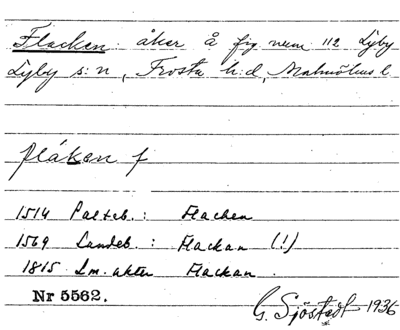 Flacken: åker å fig num 112 Lyby
Lyby s:n, Frosta h:d, Malmöhus l.
flåken f
1514 Palteb.: Flachen
1569 Landeb.: Flackan (!)
1815 Lm. akter Flackan.
Nr 5562.
G. Sjöstedt 1936